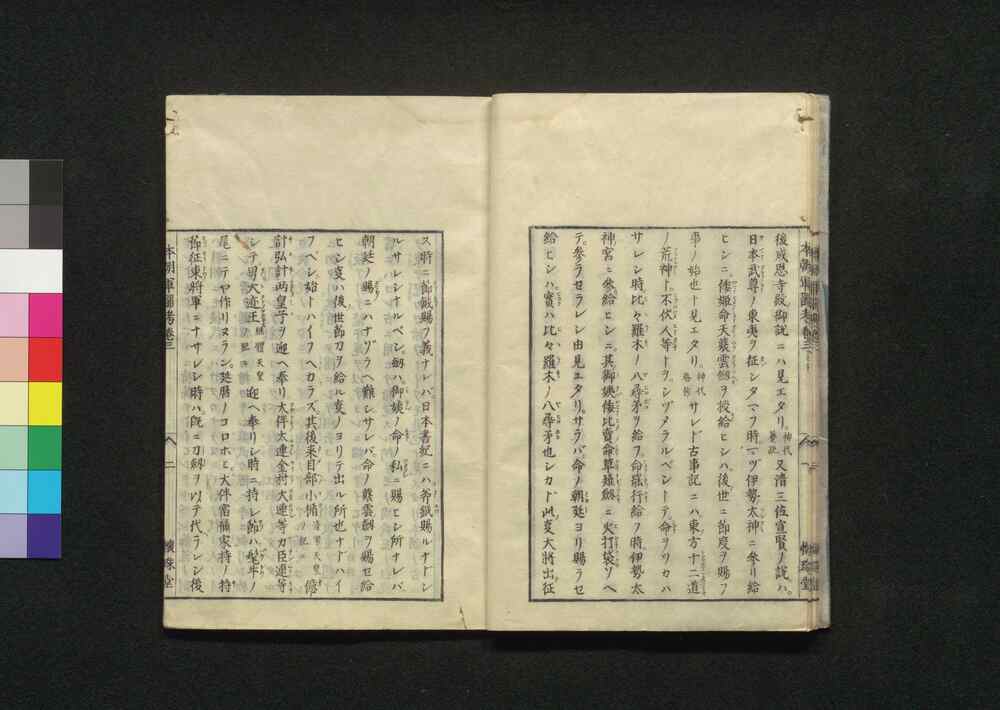 後成恩寺殿御説ニハ見エタリ。神代纂疏又清三位宣賢ノ説ハ。
日本武尊ノ東夷ヲ征シタマフ時。マヅ伊勢太神ニ参リ給
ヒシニ。倭姫命天叢雲劔ヲ授給ヒシハ後世ニ節度ヲ賜ノ
事ノ始也ト見エタリ。神代巻抄サレド古事記ニハ東方十二道
ノ荒神ト。不伏人等トヲ。シヅメラルベシトテ。命ヲツカハ
サレシ時比々羅木ノ八尋矛ヲ給フ。命罷行給フ時伊勢太
神宮ニ参給ヒシニ。其御姨倭比賣命草薙劔ニ火打袋ソヘ
テ。参ラセラレシ由見エタリ。サラバ命ノ朝廷ヨリ賜ラセ
給ヒシハ。實ハ比々羅木ノ八尋矛也シカド此度大將出征
ス時ニ節鉞賜フ義ナレバ日本書紀ニハ斧鉞賜ルナドシ
ルサレシナルベシ。劔ハ御姨ノ命ノ私ニ賜ヒシ所ナレバ
朝廷ノ賜ニハナゾラヘ難シサレバ命ノ叢雲劔ヲ賜セ給
ヒシ変ハ後世節刀ヲ給ル変ノヨリテ出ル所也ナドハイ
フベシ始トハイフヘカラズ其後来目部小楯清寧天皇ノ紀ニ億
計弘計両皇子ヲ迎ヘ奉リ大伴太連金村大連等カ臣連等
シテ男大迹王継體天皇ノ紀ニ迎ヘ奉リシ時ニ持シ節ハ髦牛ノ
尾ニテヤ作リヌラン。延暦ノコロホヒ大伴宿禰家持ノ持
節征東將軍ニナサレシ時ハ。既ニ刀劔ヲ以テ代ラシシ後
本朝軍器考巻三
二
懐珠堂